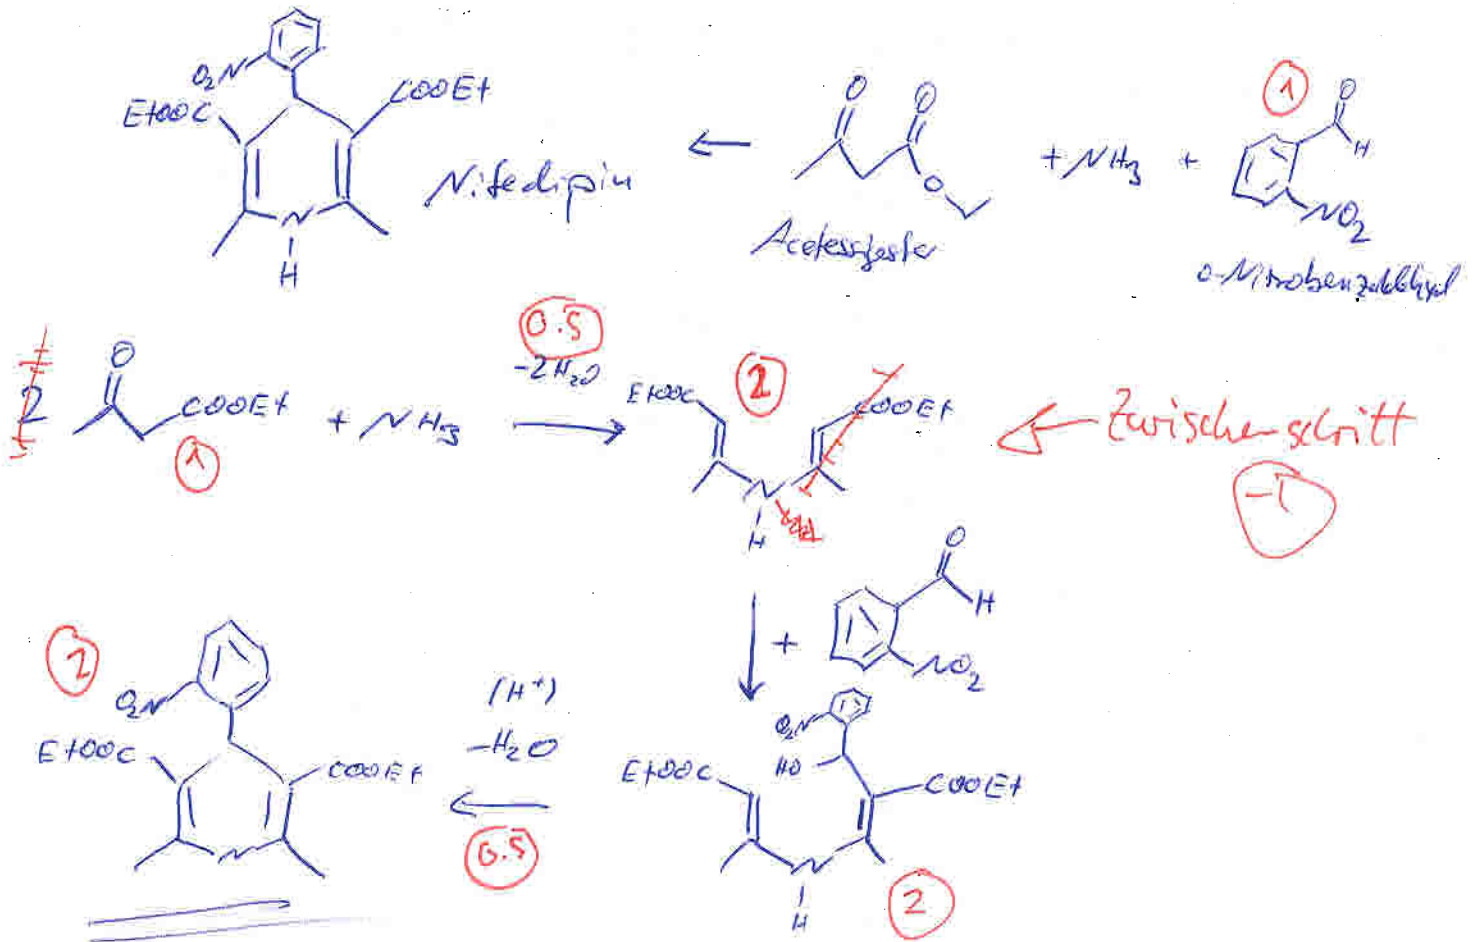 O₂N
EtOOC
COOEt
N
H
Nifedipin
O
O
O
Acetessigester
+ NH₃ +
1
O
H
NO₂
o-Nitrobenzaldehyd
2
O
COOEt
1
+ NH₃
0.5
-2H₂O
EtOOC
2
COOEt
N
H
Zwischenschritt
-1
+
O
H
NO₂
O₂N
HO
EtOOC
COOEt
N
H
2
(H⁺)
-H₂O
0.5
2
O₂N
EtOOC
COOEt
N